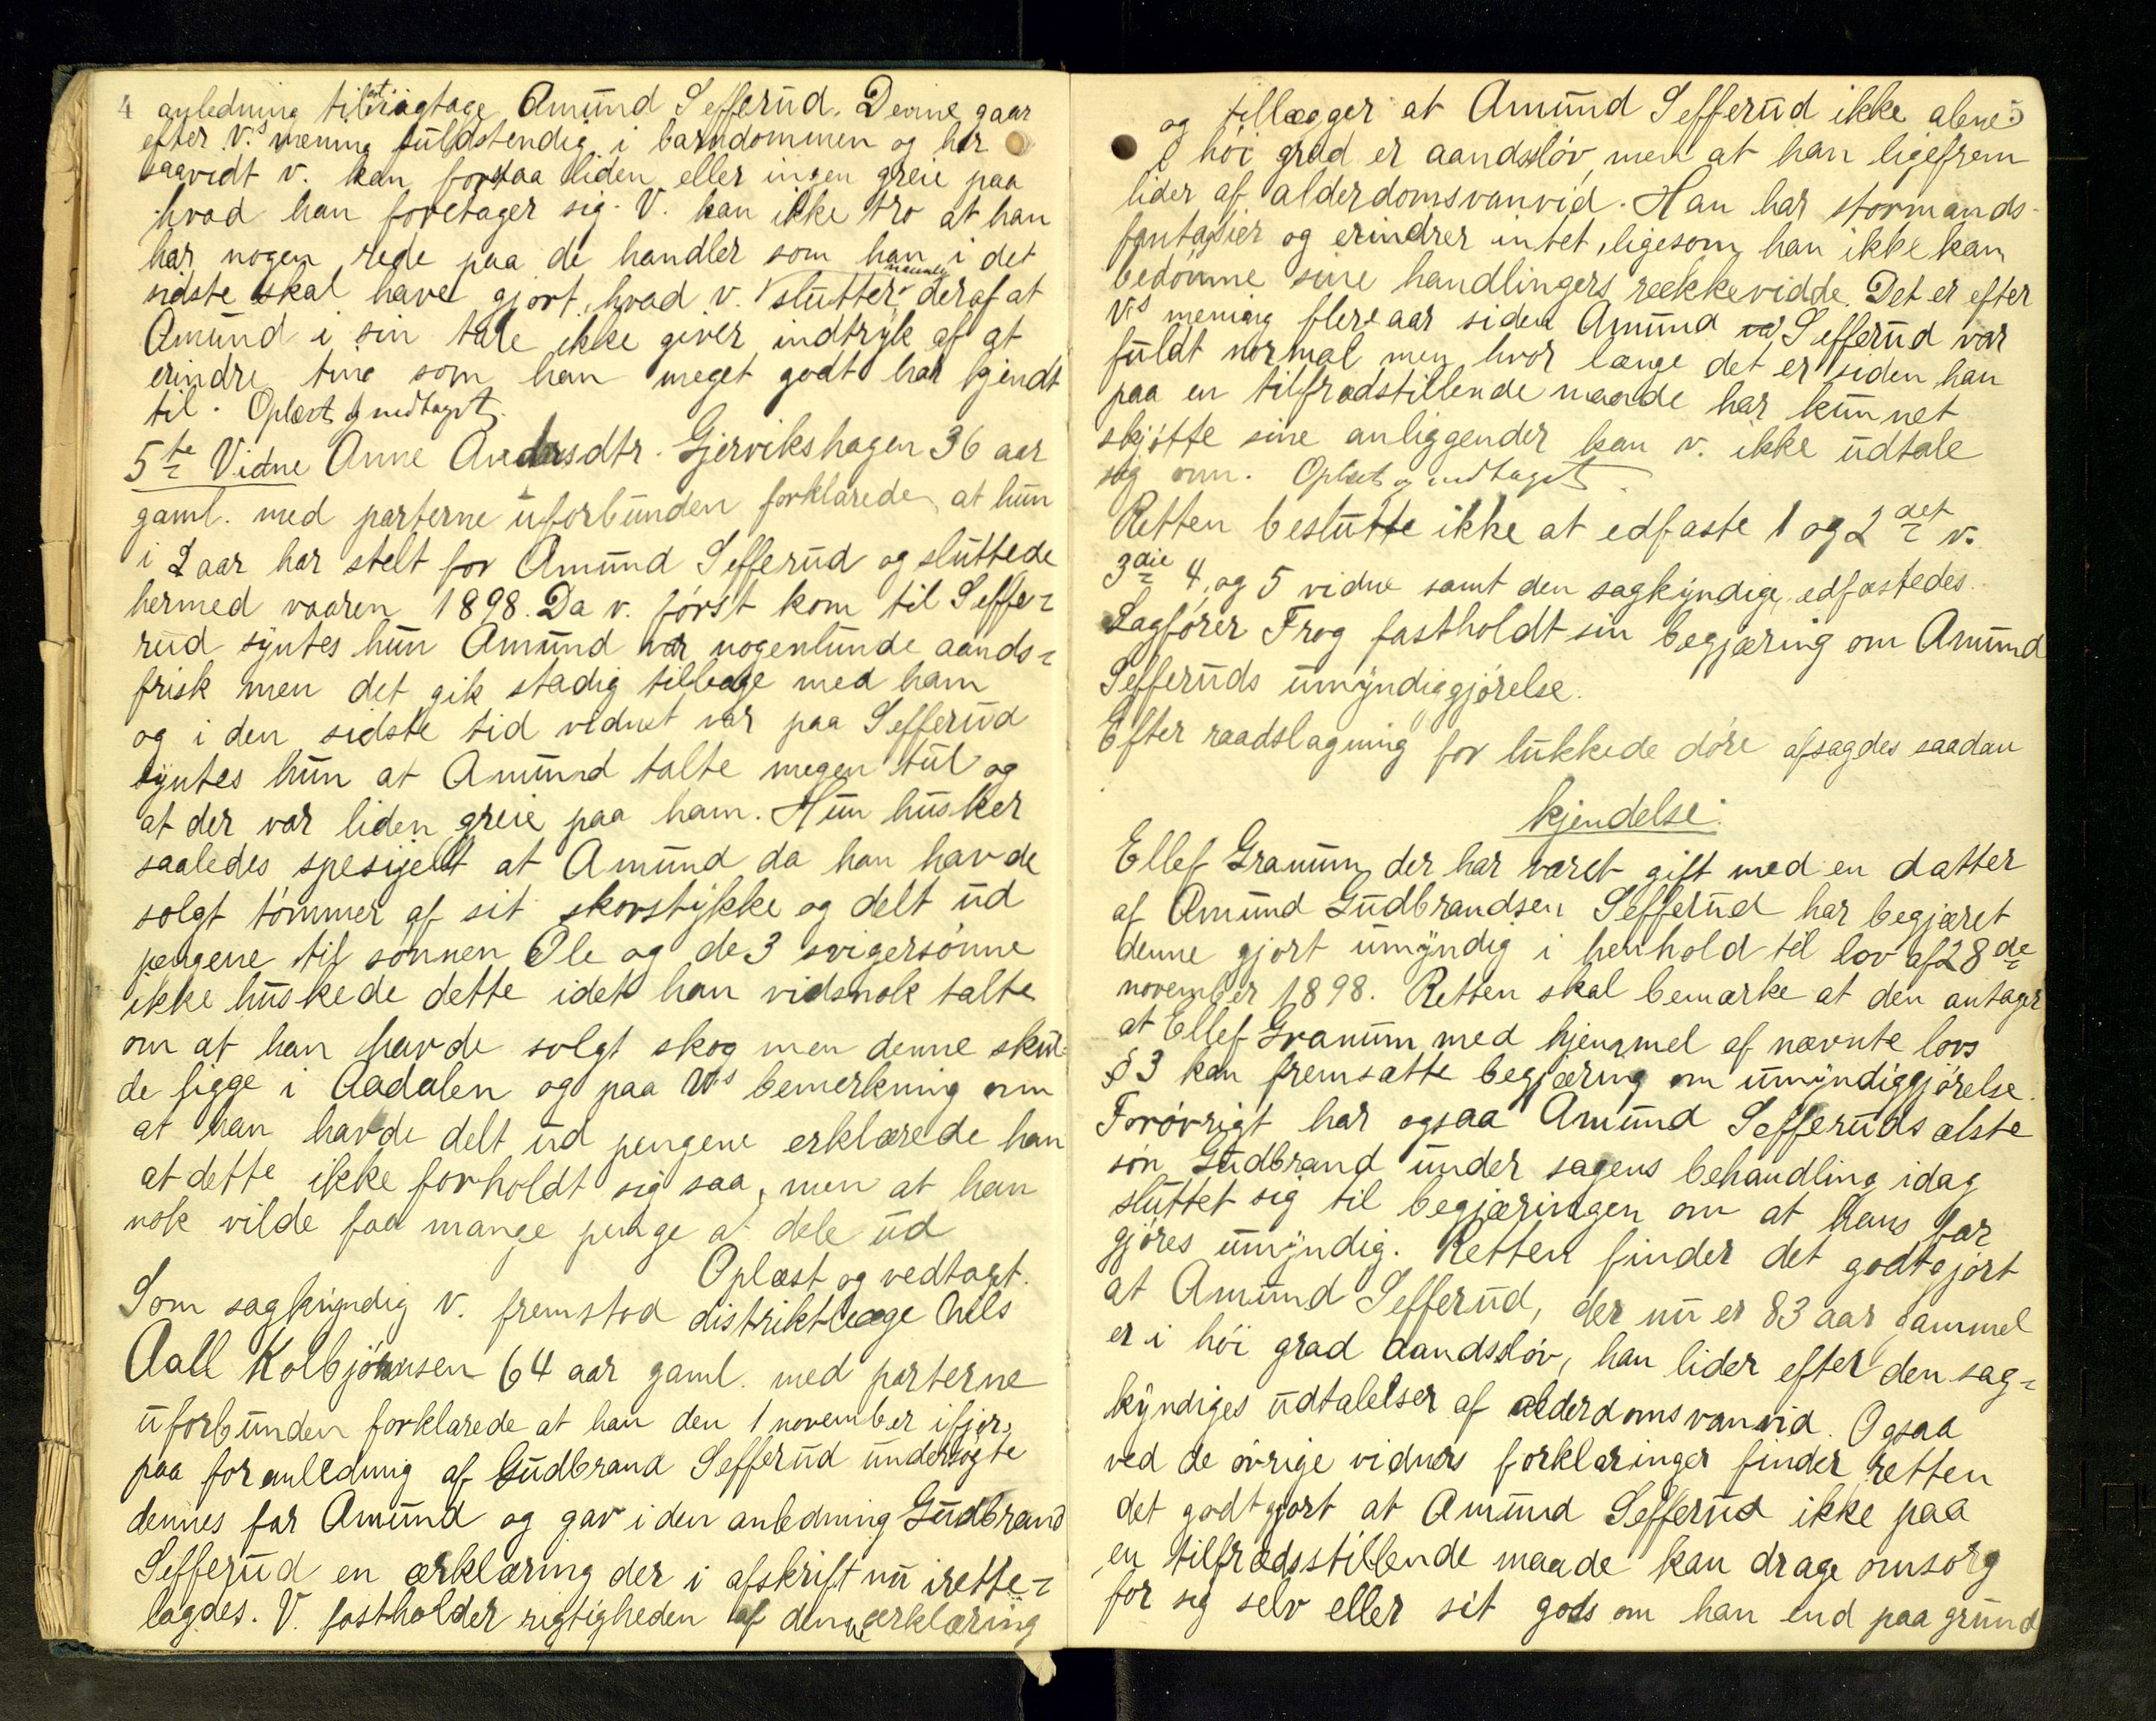 4 anledning til at iagtage Amund Sefferud. Denne gaar
efter V.s mening fuldstendig i barndommen og har
saavidt v. kan forstaa liden eller ingen greie paa
hvad han foretager sig. V. kan ikke tro at han
har nogen rede paa de handler som han i det
sidste skal have gjort, hvad v. slutter deraf at
Amund i sin tale ikke giver indtryk af at
erindre ting som han meget godt har kjendt
til. Oplæst og vedtaget.
5te Vidne Anne Andersdtr. Gjervikshagen 36 aar
gaml. med parterne uforbunden forklarede at hun
i 2 aar har stelt for Amund Sefferud og sluttede
hermed vaaren 1898. Da v. først kom til Seffe-
rud syntes hun Amund var nogenlunde aands-
frisk men det gik stadig tilbage med ham
og i den sidste tid vidnet var paa Sefferud
syntes hun at Amund talte megen tul og
at der var liden greie paa ham. Hun husker
saaledes spesijelt at Amund da han havde
solgt tømmer af sit skovstykke og delt ud
pengene til sønnen Ole og de 3 svigersønne
ikke huskede dette idet han vidsnok talte
om at han havde solgt skog men denne skul-
de ligge i Aadalen og paa Vs bemerkning om
at han havde delt ud pengene erklærede han
at dette ikke forholdt sig saa, men at han
nok vilde faa mange penge at dele ud
Oplæst og vedtaget.
Som sagkyndig v. fremstod distriktlæge Nils
Aall Kolbjørnsen 64 aar gaml. med parterne
uforbunden forklarede at han den 1 november ifjor,
paa foranledning af Gudbrand Sefferud undersøgte
dennes far Amund og gav i den anledning Gudbrand
Sefferud en erklæring der i afskrift nu irette-
lagdes. V. fastholder rigtigheden af denne erklæring
5
og tillægger at Amund Sefferud ikke alene
i høi grad er aandssløv, men at han ligefrem
lider af alderdomsvanvid. Han har stormands-
fantasier og erindrer intet, ligesom han ikke kan
bedømme sine handlingers rekkevidde. Det er efter
Vs mening flere aar siden Amund Sefferud var
fuldt normal men hvor længe det er siden han
paa en tilfredstillende maade har kunnet
skjøtte sine anliggender kan v. ikke udtale
sig om. Oplæst og vedtaget.
Retten beslutte ikke at edfaste 1 og 2det v.
3die 4, og 5 vidne samt den sagkyndige edfæstedes.
Sagfører Frog fastholdt sin begjæring om Amund
Sefferuds umyndiggjørelse.
Efter raadslagning for lukkede døre afsagdes saadan
kjendelse:
Ellef Granum der har været gift med en datter
af Amund Gudbrandsen Sefferud har begjæret
denne gjort umyndig i henhold til lov af 28de
november 1898. Retten skal bemærke at den antager
at Ellef Granum med hjemmel af nævnte lovs
§ 3 kan fremsætte begjæring om umyndiggjørelse.
Forøvrigt har ogsaa Amund Sefferuds ælste
søn Gudbrand under sagens behandling idag
sluttet sig til begjæringen om at hans far
gjøres umyndig. Retten finder det godtgjort
at Amund Sefferud, der nu er 83 aar gammel
er i høi grad aandssløv, han lider efter den sag-
kyndiges udtalelser af alderdomsvanvid. Ogsaa
ved de øvrige vidners forklaringer finder retten
det godtgjort at Amund Sefferud ikke paa
en tilfredsstillende maade kan drage omsorg
for sig selv eller sit gods om han end paa grund